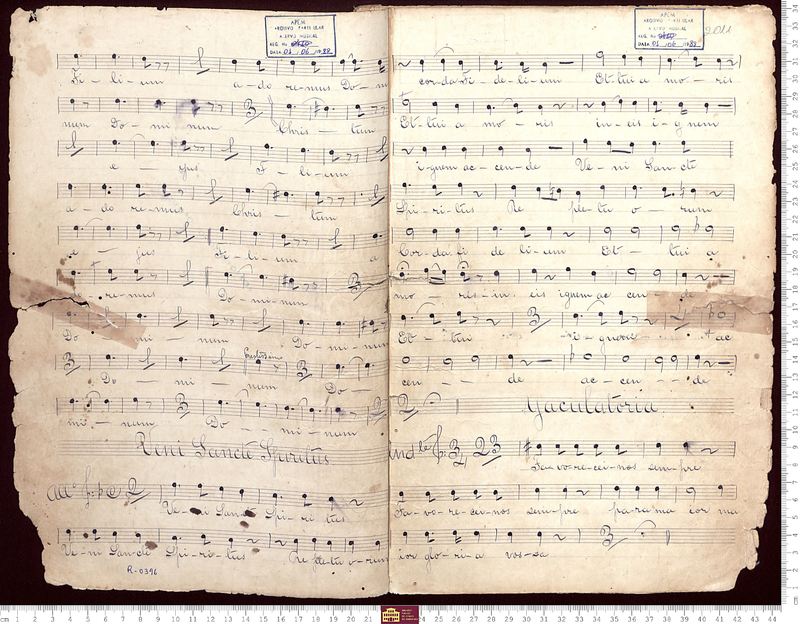 APEM
ARQUIVO PARTICULAR
A LEVO MUSICAL
DATA 01 06 1988
Fi - li - um a - do re - mus Do - mi
num Do - mi - num Chris - tum
e - jus Fi - li - um
a - do re - mus Chris - tum
e - jus Fi - li - um a
re - mus Do - mi - num
Do - mi num Do - mi - num
Do - mi - num Do -
mi - num Do - mi - num
Veni Sancte Spiritus
Ve - ni Sanc Spi - ri tus
Ve - ni Sancte Spi - ri - tus Re ple - tu o - rum
R-0396
APEM
ARQUIVO PARTICULAR
A LEVO MUSICAL
DATA 01 06 1988
cor - da Fi - de - li - um Et - tui a mo - ris
Et - tui a mo - ris in - eis i - g nem
ignem ac - cen - de Ve - ni Sanc te
Spi - ri - tus Re ple - tu o - rum
Cor - da fi de li - um Et - tui a
mo - ris - in eis ignem ac cen - de
Et - tui ac
cen - de ac - cen - de
Jaculatoria
Fa vo - re - cei - nos sem - pre
Fa - vo - re - cei - nos sem - pre pa - ra ma ior ma
ior glo - ri - a vos - sa